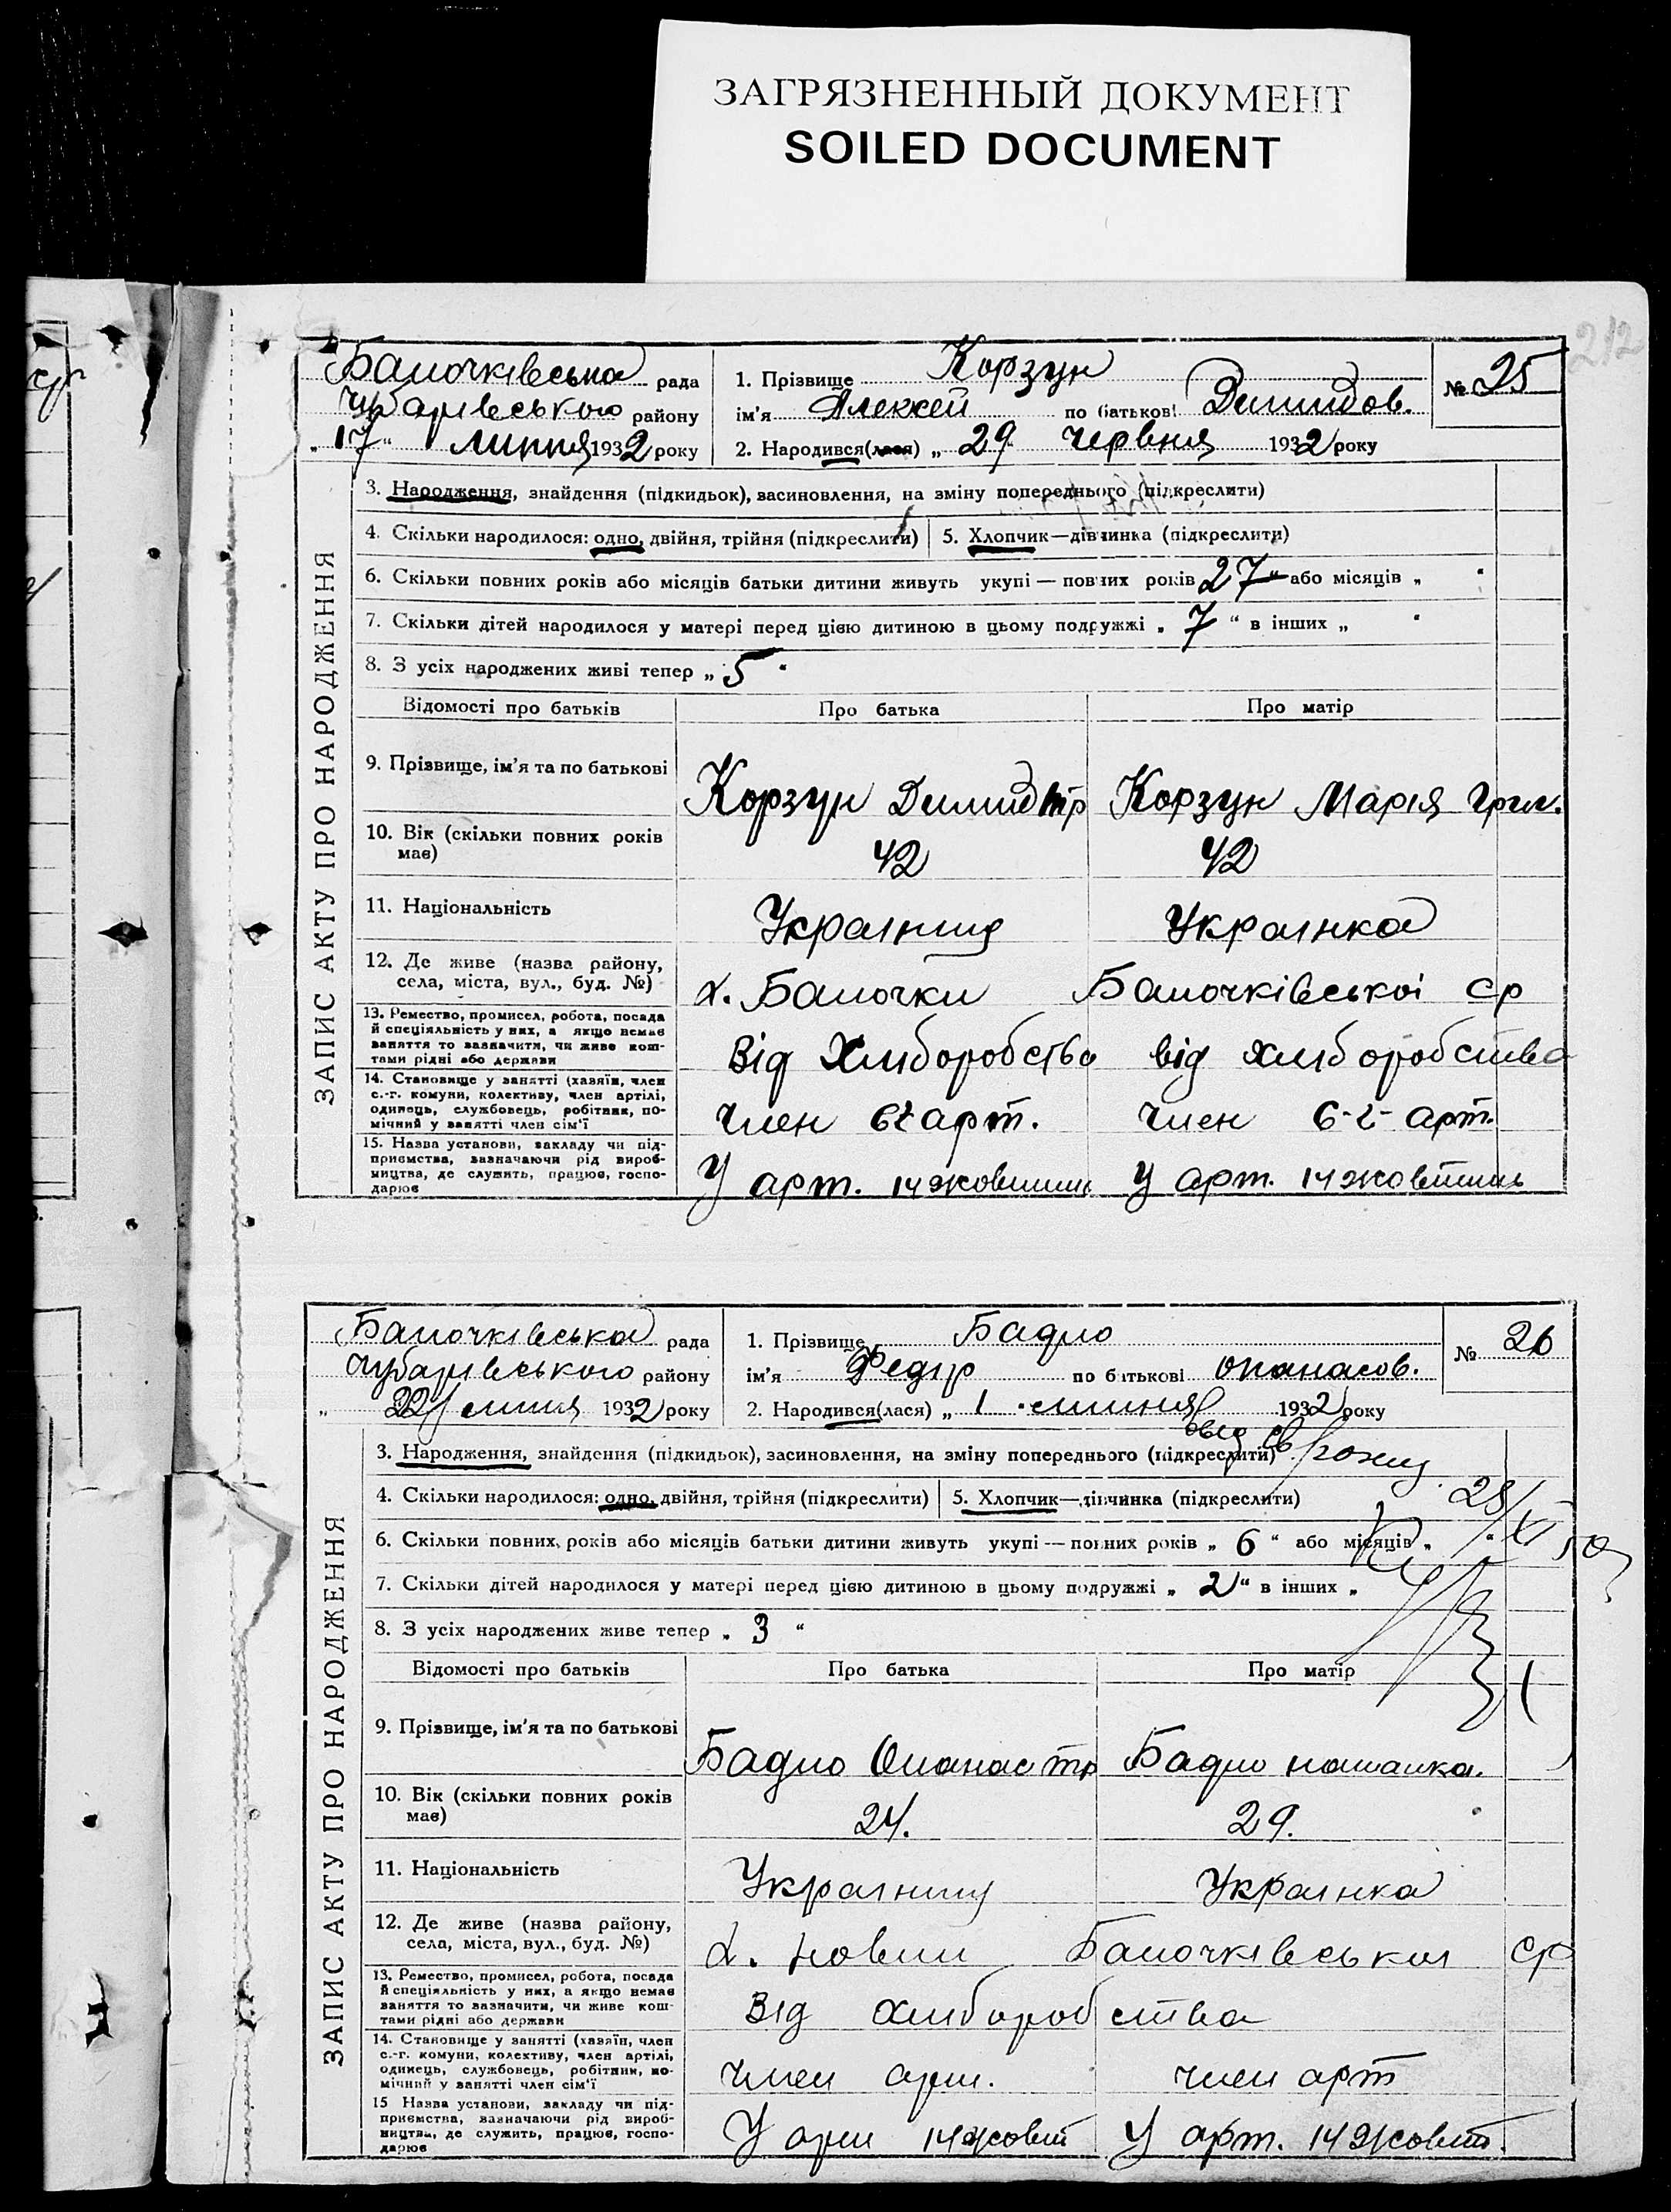 ЗАГРЯЗНЕННЫЙ ДОКУМЕНТ
SOILED DOCUMENT
212
Баночківська рада
Чубарівського району
„17“ липня 1932 року
1. Прізвище Корзун
ім'я Алексей по батькові Демидов.
2. Народився(лася) „29 червня 1932 року
№ 25
ЗАПИС АКТУ ПРО НАРОДЖЕННЯ
3. Народження, знайдення (підкидьок), засиновлення, на зміну попереднього (підкреслити)
4. Скільки народилося: одно, двійня, трійня (підкреслити)
5. Хлопчик—дівчинка (підкреслити)
6. Скільки повних років або місяців батьки дитини живуть укупі — повних років 27 “ або місяців „ “
7. Скільки дітей народилося у матері перед цією дитиною в цьому подружжі „ 7 “ в інших „ “
8. З усіх народжених живі тепер „ 5 “
Відомості про батьків
Про батька
Про матір
9. Прізвище, ім'я та по батькові
Корзун Демид
Корзун Марія
10. Вік (скільки повних років
має)
42
42
11. Національність
Українець
Українка
12. Де живе (назва району,
села, міста, вул., буд. №)
Баночки Баночківської ср
13. Ремество, промисел, робота, посада
й спеціяльність у них, а якщо немає
заняття то зазначити, чи живе кош-
тами рідні або держави
Від Хліборобства
від хліборобства
14. Становище у занятті (хазяїн, член
с.-г. комуни, колективу, член артілі,
одинець, службовець, робітник, по-
мічний у занятті член сім'ї
Член арт.
Член арт.
15. Назва установи, закладу чи під-
приємства, зазначаючи рід вироб-
ництва, де служить, працює, госпо-
дарює
У арт. 14 жовтень
У арт. 14 жовтень
Баночківська рада
Чубарівського району
„ 22 липня 1932 року
1. Прізвище Бадло
ім'я Федір по батькові Опанасов.
2. Народився(лася) „ 1 липня 1932 року
№ 26
ЗАПИС АКТУ ПРО НАРОДЖЕННЯ
3. Народження, знайдення (підкидьок), засиновлення, на зміну попереднього (підкреслити)
4. Скільки народилося: одно, двійня, трійня (підкреслити)
5. Хлопчик—дівчинка (підкреслити)
6. Скільки повних років або місяців батьки дитини живуть укупі — повних років „ 6 “ або місяців „ “
7. Скільки дітей народилося у матері перед цією дитиною в цьому подружжі „ 2 “ в інших „
8. З усіх народжених живе тепер „ 3 “
Відомості про батьків
Про батька
Про матір
9. Прізвище, ім'я та по батькові
Бадло Опанас
Бадло
10. Вік (скільки повних років
має)
24.
29.
11. Національність
Українець
Українка
12. Де живе (назва району,
села, міста, вул., буд. №)
Баночківськоі ср
13. Ремество, промисел, робота, посада
й спеціяльність у них, а якщо немає
заняття то зазначити, чи живе кош-
тами рідні або держави
Від хліборобства
14. Становище у занятті (хазяїн, член
с.-г. комуни, колективу, член артілі,
одинець, службовець, робітник, по-
мічний у занятті член сім'ї
Член арт.
член арт
15 Назва установи, закладу чи під-
приємства, зазначаючи рід вироб-
ництва, де служить, працює, госпо-
дарює
У арт 14 жовт
У арт. 14 жовт.